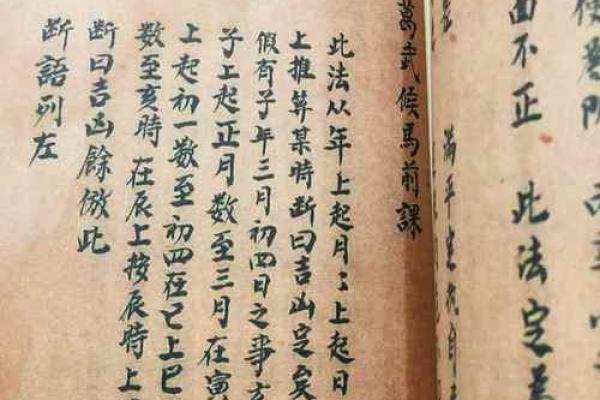 面不正 此法定為
滿平生
葛武候馬前課
此法从年上起月〻上起日
上推算某時断曰吉凶定矣
假有子年三月初四日之事
子上起正月数至三月在寅
上起初一数至初四在巳上巳
数至亥時在辰上按辰時上
断曰吉凶餘倣此
断語列左